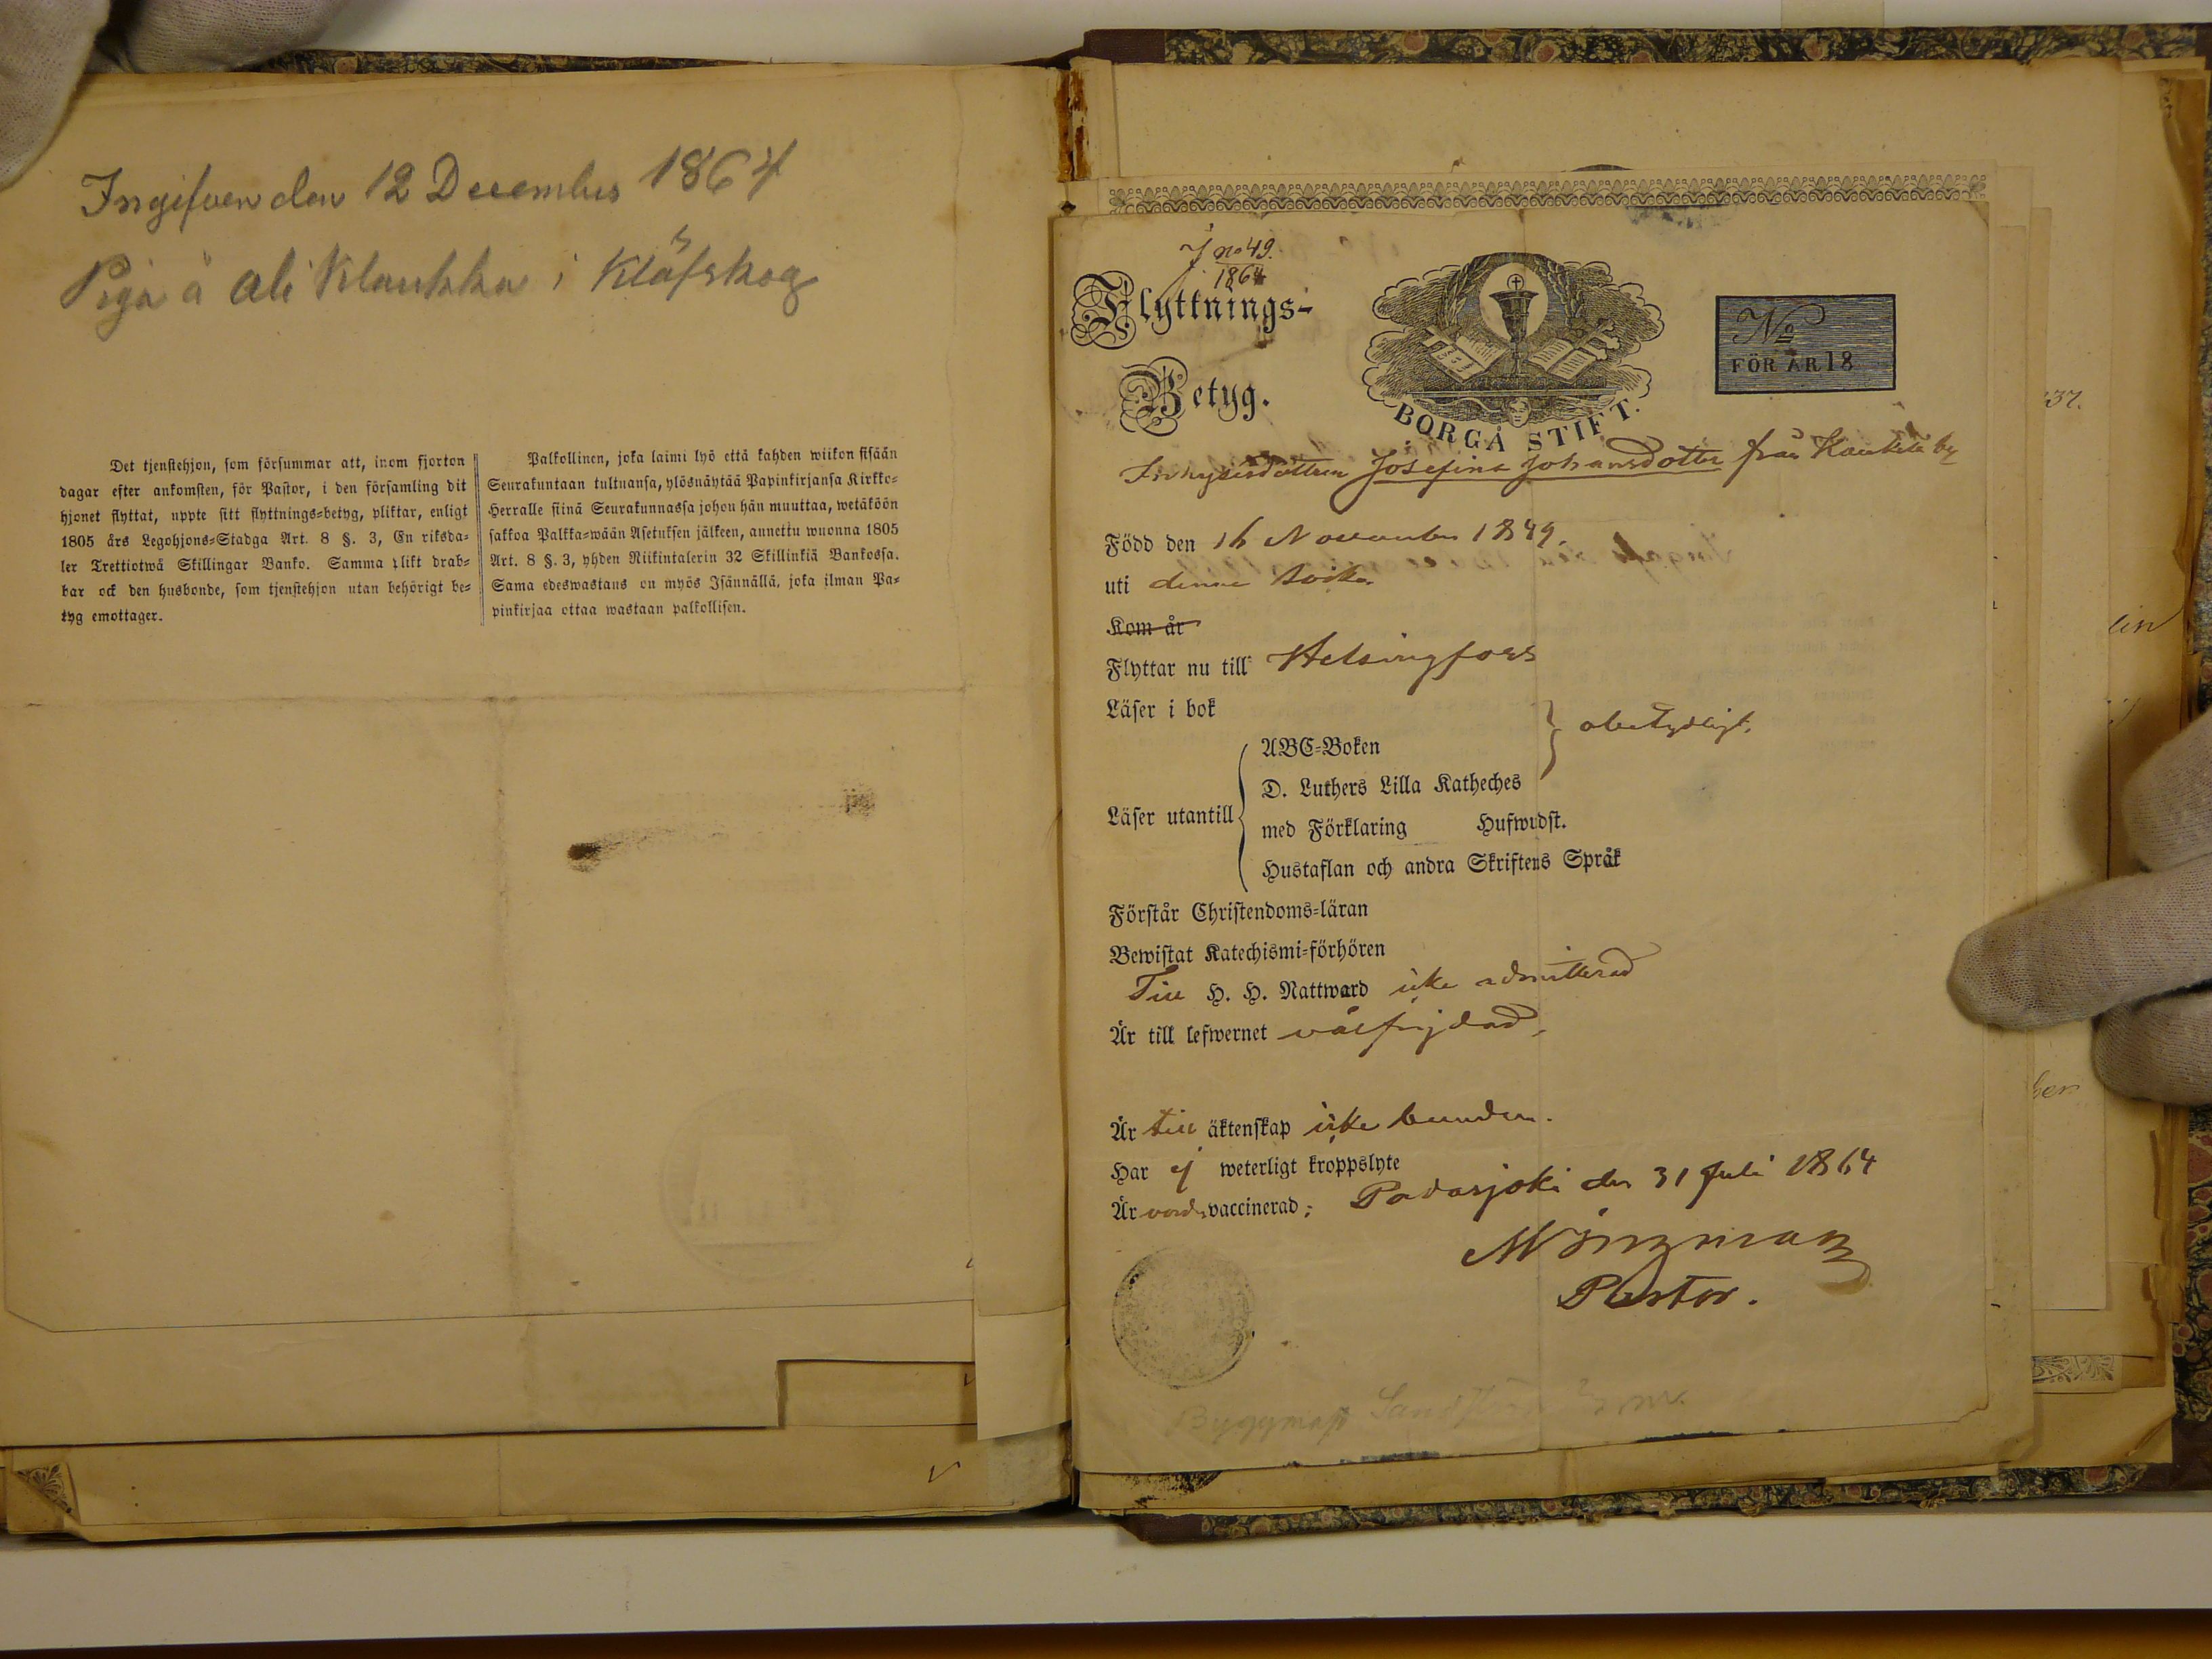 Ingifven den 12 December 1864
Piga å Ali Klaukka i Klöfskog
Det tjenstehjon, som försummar att, inom fjorton
dagar efter ankomsten, för Pastor, i den församling dit
hjonet flyttat, uppte sitt flyttnings=betyg, pliktar, enligt
1805 års Legohjons=Stadga Art. 8 §. 3, En riksda=
ler Trettiotwå Skillingar Banko. Samma plikt drab=
bar ock den husbonde, som tjenstehjon utan behörigt be=
tyg emottager.
Palkollinen, joka laimi lyö että kahden wiikon sisään
Seurakuntaan tultuansa, ylösnäytää Papinkirjansa Kirkko=
Herralle siinä Seurakunnassa johon hän muuttaa, wetäköön
sakkoa Palkka=wään Asetuksen jälkeen, annettu wuonna 1805
Art. 8 §. 3, yhden Riikintalerin 32 Skillinkiä Bankossa.
Sama edeswastaus on myös Isännällä, joka ilman Pa=
pinkirjaa ottaa wastaan palkollisen.
no 49.
1864
Flyttnings=
Betyg.
BORGÅ STIFT.
No
FÖR ÅR 18
Inhysesdottren Josefina Johansdotter från Kaukela by
Född den 16 November 1849.
uti denna socken
Kom år
Flyttar nu till Helsingfors
Läser i bok
obetydligt.
ABC=Boken
D. Luthers Lilla Katheches
Läser utantill
med Förklaring Hufwudst.
Hustaflan och andra Skriftens Språk
Förstår Christendoms=läran
Bewistat Katechismi=förhören
Till H. H. Nattward icke admitterad
Är till lefwernet välfrejdad.
Är till äktenskap icke bunden.
Har ej weterligt kroppslyte
Är vorden vaccinerad; Padasjoki den 31 Juli 1864
Pastor.
Byggmast